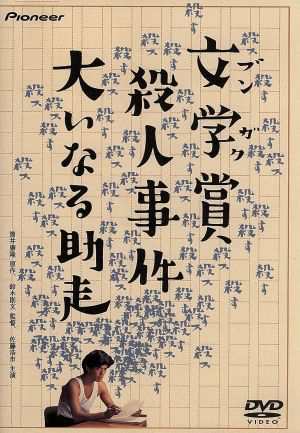 Pioneer
ブンガク
文学賞
殺人事件
大いなる助走
筒井康隆・原作 鈴木則文・監督 佐藤浩市・主演
殺す
DVD
VIDEO